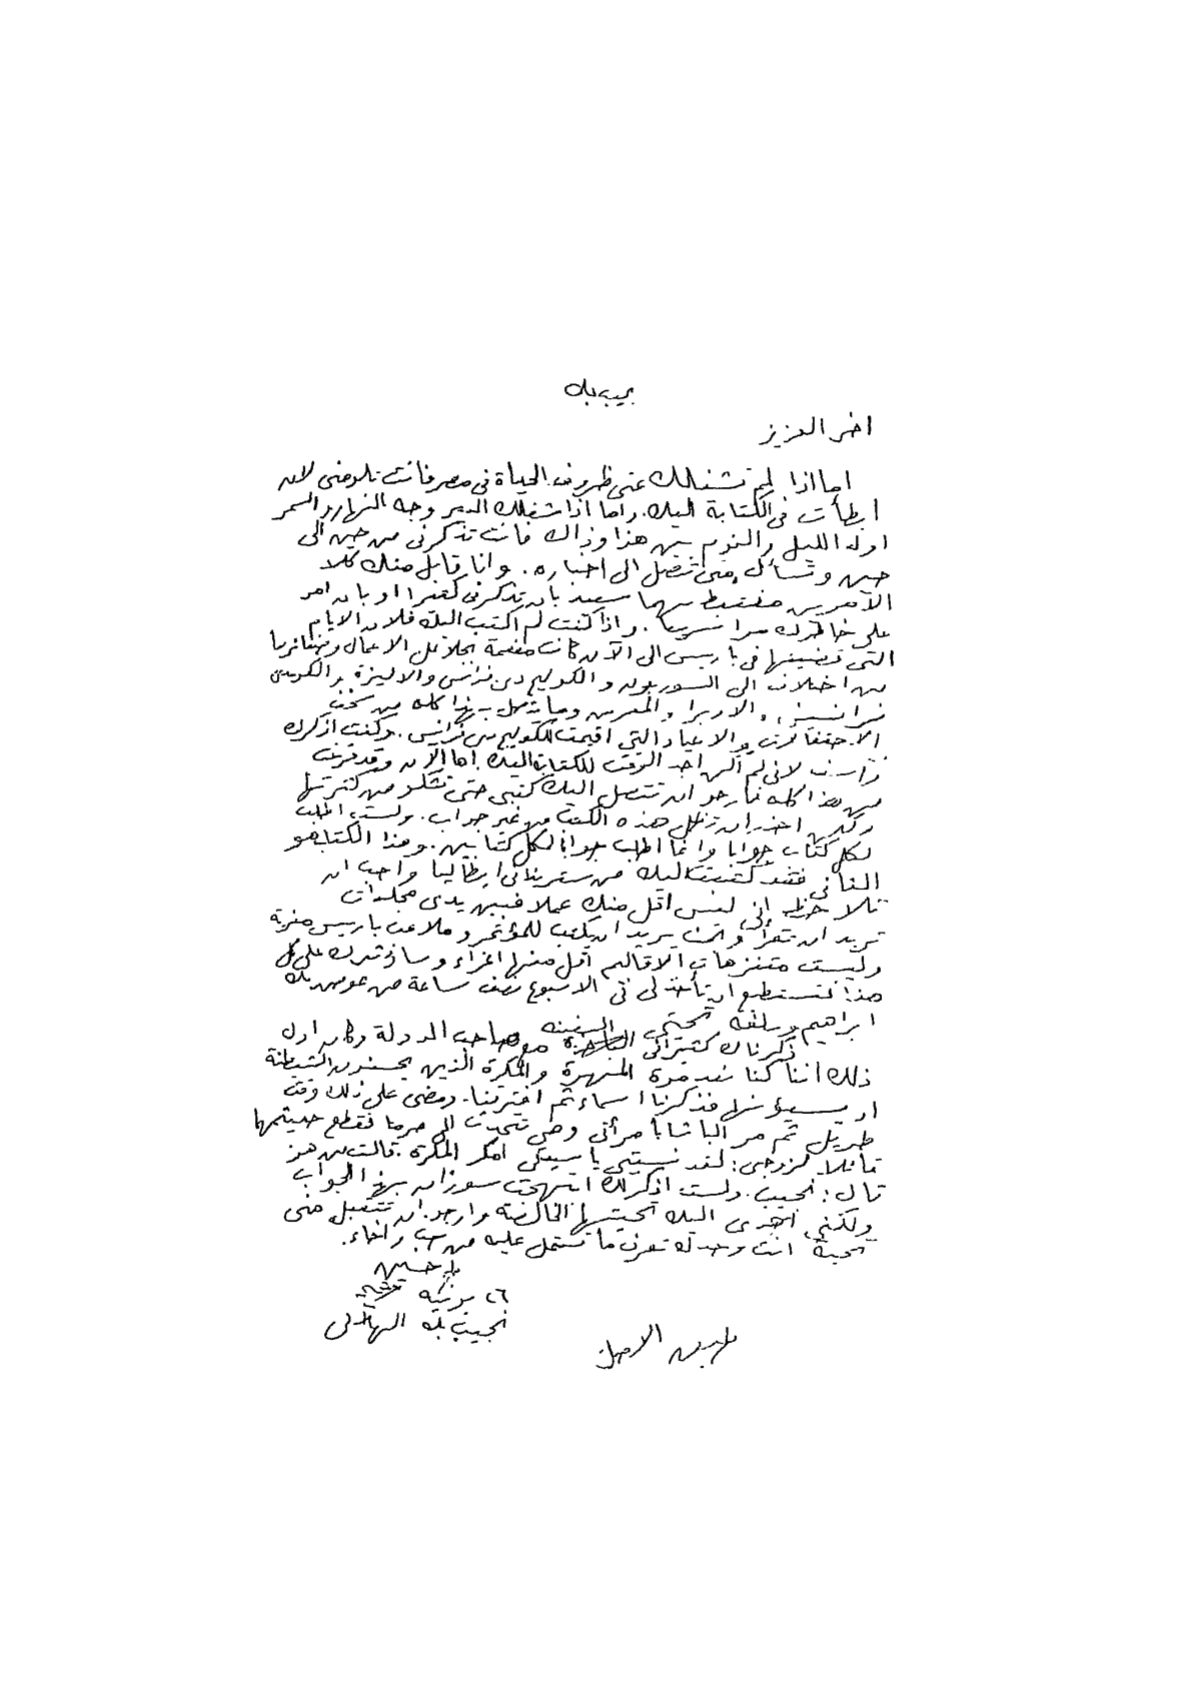 نجيب بك
اخى العزيز
اما اذا لم تشغلك عنى ظروف الحياة فى مصر فانت تلومنى لان
ابطأت فى الكتابة اليك. واما اذا شغلك الدير وجه النهار والسمر
اول الليل والنوم بين هذا وذاك فانت تذكرنى من حين الى
حين وتسأل متى تصل الى اخباره. وانا قابل منك كلا
الامرين مغتبط بهما سعيد بان تذكرنى كثيرا او بان امر
على خاطرك مرا سريعا. واذا كنت لم اكتب اليك فلان الايام
التى قضيتها فى باريس الى الآن كانت مفعمة بجلائل الاعمال
من اختلاف الى السوربون والكوليج دى فرانس والاليزة والكوميدى
فرانسيز، والاوبرا والمعرض وما يتصل بهذا كله من سخف
الاحتفالات والاعياد التى اقيمت للكوليج دى فرانس. وكنت اذكرك
لانى لم اكن اجد الوقت للكتابة اليك. اما الآن وقد فرغت
من هذا كله فارجو ان تتصل اليك كتبى حتى تشكو من كثرتها
ولكن احذر ان تظل هذه الكتب من غير جواب. ولست اطلب
لكل كتاب جوابا وانما اطلب جوابا لكل كتابين. وهذا الكتاب هو
الثانى فقد كتبت اليك من ايطاليا واحب ان
تلاحظ انى لست اقل منك عملا فبين يدى مجلدات
تريد ان تقرأ و يريد ان يكتب للمؤتمر وملاعب باريس مغرية
وليست متنزهات الاقاليم اقل منها اغراء وساذكرك على كل
هذا فتستطيع ان تأخذ لى فى الاسبوع نصف ساعة من عوض بك
ابراهيم وسلفه تحيتى
ذكرناك كثيرا فى السفينة مع صاحب الدولة وكان اول
ذلك اننا كنا نعد المهرة والمكرة الذين يحسنون الشيطنة
او يسيؤنها فذكرنا اسماء ثم افترقنا. ومضى على ذلك وقت
طويل ثم مر الباشا بامرأتى وهى تتحدث الى حرمه فقطع حديثهما
قائلا لزوجى: لقد نسيتى يا سيدتى امكر المكرة. قالت من هو
قال: نجيب. ولست اذكر لك ابتهجت سوزان بهذا الجواب
ولكنى اهدى اليك تحيتها الخالصة وارجو ان تتقبل منى
تحية انت وحدك تعرف ما تشتمل عليه من حب واخاء.
طه حسين
٢٦ يونيه
نجيب بك الهلالى
طبق الاصل